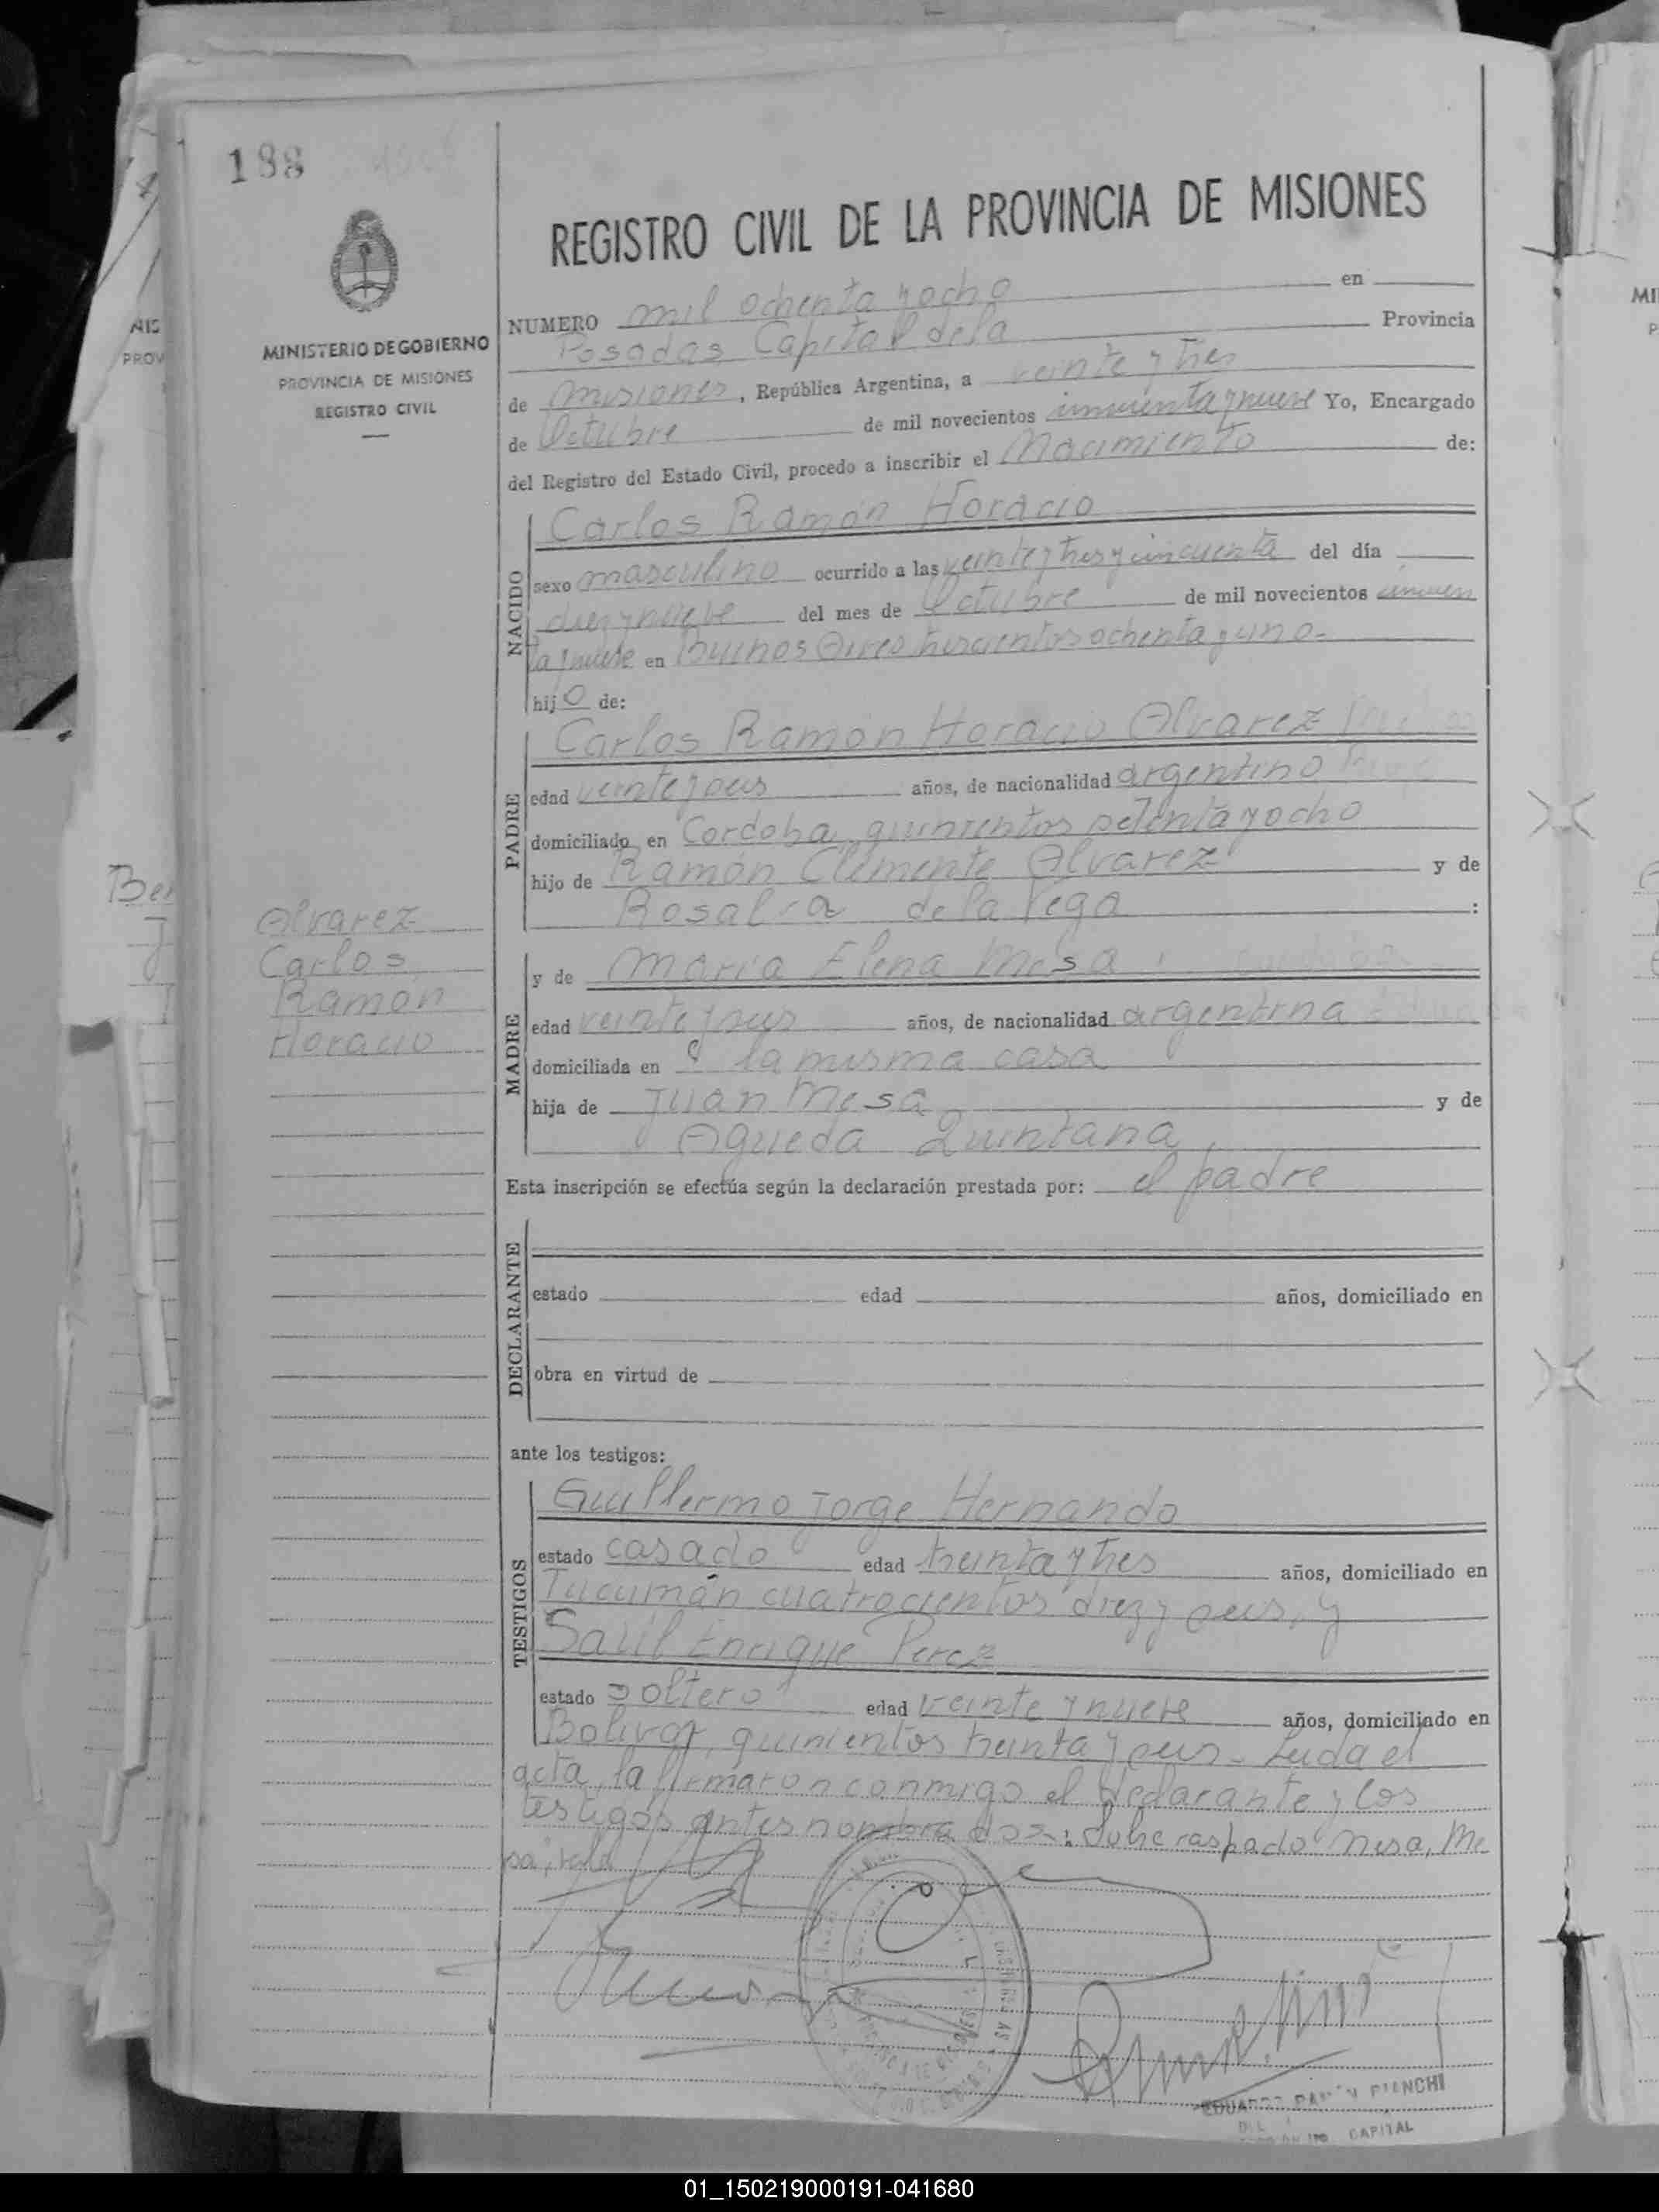 188
REGISTRO CIVIL DE LA PROVINCIA DE MISIONES
MINISTERIO DE GOBIERNO
PROVINCIA DE MISIONES
REGISTRO CIVIL
NUMERO mil ochenta y ocho en
Posadas, Capital de la Provincia
de Misiones, República Argentina, a veinte y tres
de Octubre de mil novecientos cincuenta y nueve Yo, Encargado
del Registro del Estado Civil, procedo a inscribir el Nacimiento de:
NACIDO
Carlos Ramón Horacio
sexo masculino ocurrido a las veinte y tres y cincuenta del día
diez y nueve del mes de Octubre de mil novecientos cincuen
ta y nueve en Buenos Aires trescientos ochenta y uno-
hijo de:
PADRE
Carlos Ramón Horacio Alvarez
edad veinte y seis años, de nacionalidad argentino
domiciliado en Cordoba, quinientos setenta y ocho
hijo de Ramón Clemente Alvarez y de
Rosalia de la Vega :
Alvarez
Carlos
Ramón
Horacio
MADRE
y de María Elena Mesa
edad veinte y seis años, de nacionalidad argentina
domiciliada en la misma casa
hija de Juan Mesa y de
Agueda Quintana,
Esta inscripción se efectúa según la declaración prestada por: el padre
DECLARANTE
estado edad años, domiciliado en
obra en virtud de
ante los testigos:
TESTIGOS
Guillermo Jorge Hernando
estado casado edad treinta y tres años, domiciliado en
Tucumán cuatrocientos diez y seis, y
Saúl Enrique Perez
estado soltero edad veinte y nueve años, domiciliado en
Bolivar, quinientos treinta y seis- Leida el
acta, la firmaron conmigo el declarante y los
testigos antes nombrados: Sobre raspado Mesa, Me
sa, vale
EDUARDO RAMÓN BIANCHI
CAPITAL
01_150219000191-041680